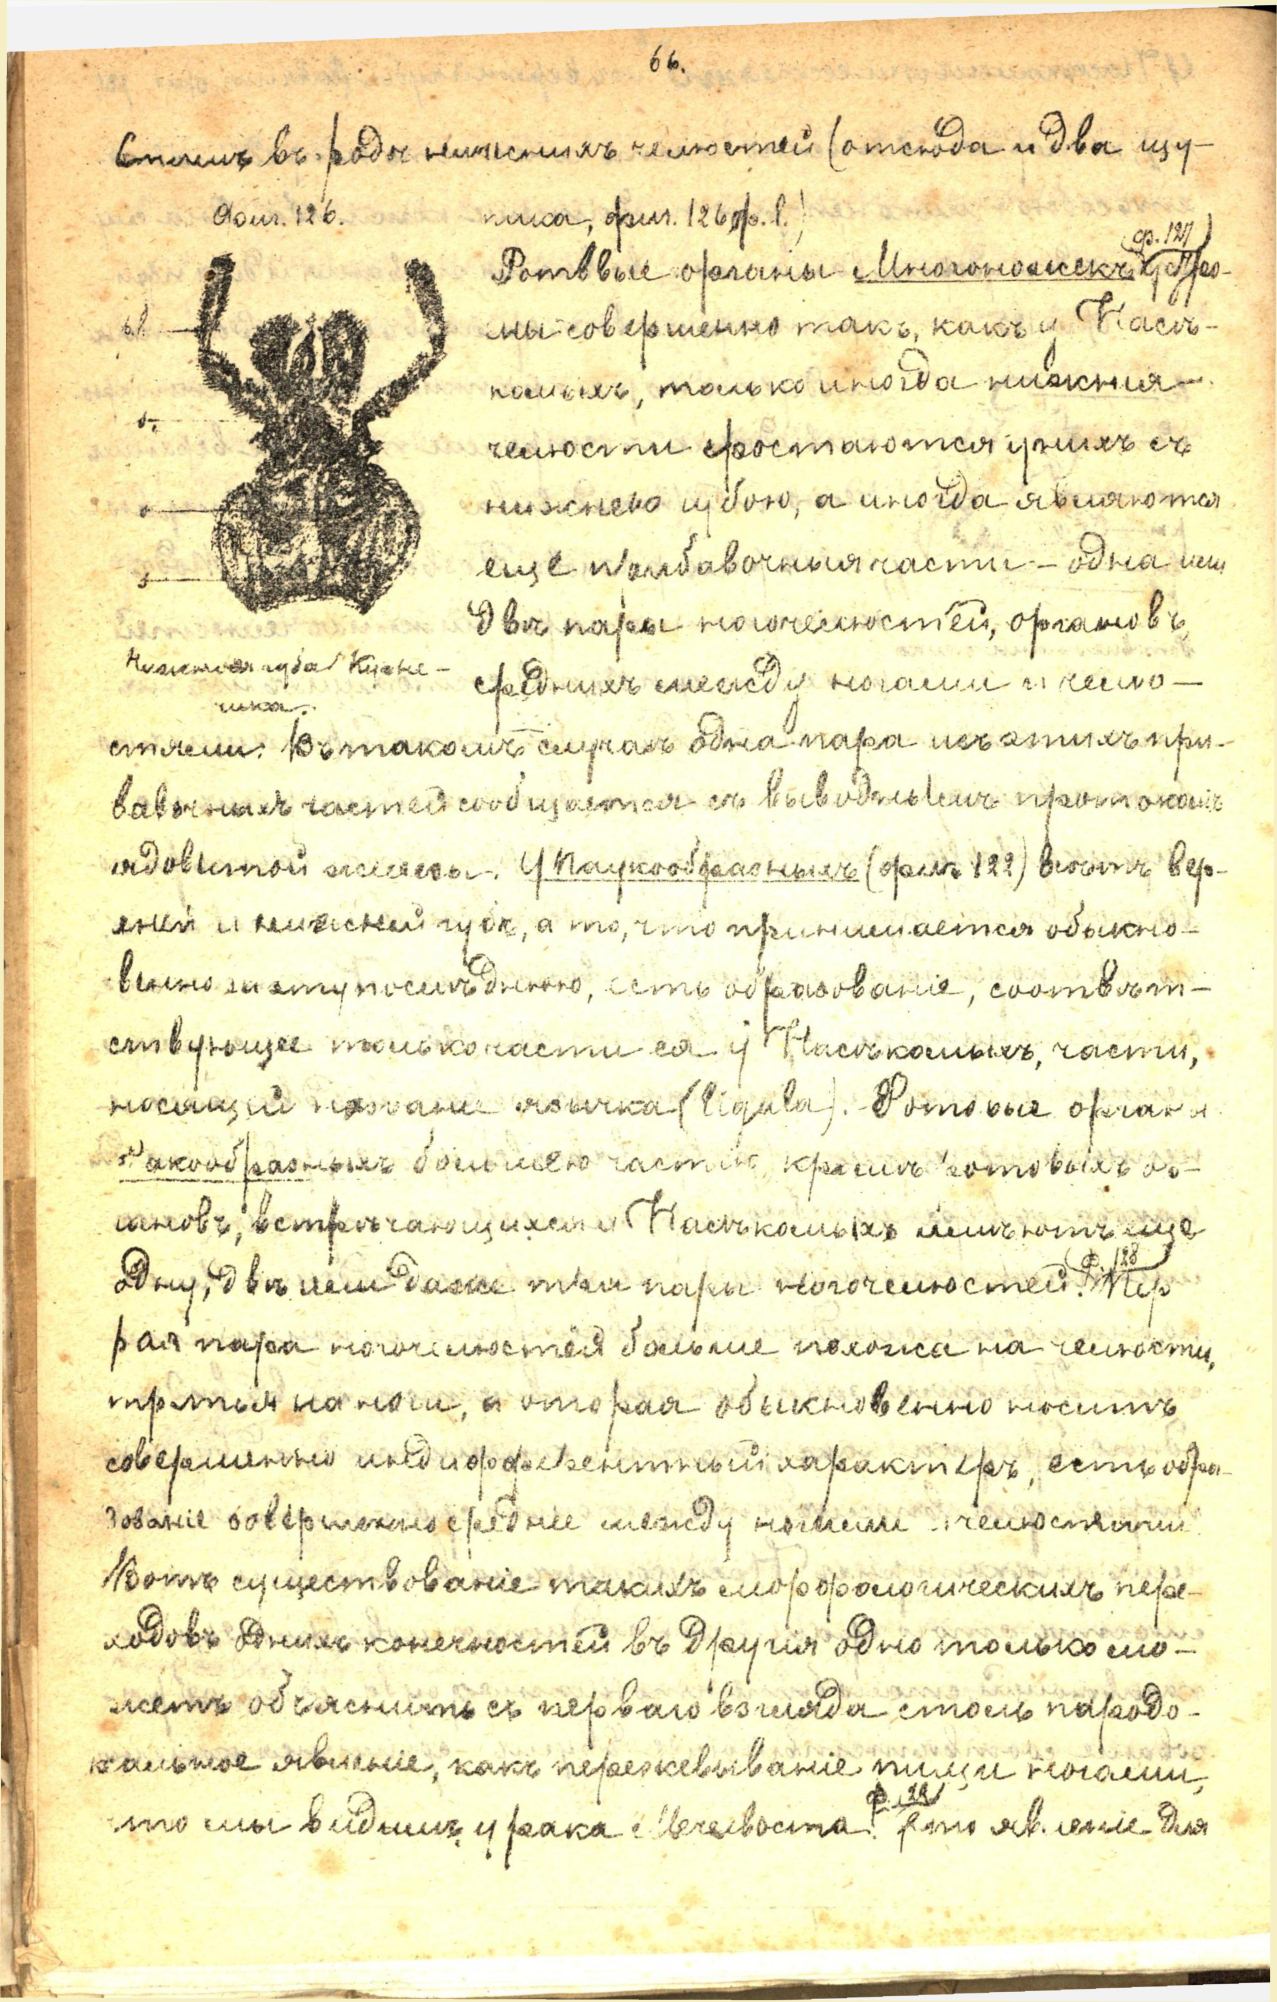 66.
въ родѣ нижнихъ челюстей (отсюда и два щу-
Фиг. 126.
пика, фиг. 126 p. l.)
Ротовые органы Многоножекъ (ф. 127) устрое-
ны совершенно такъ, какъ у Насѣ-
комыхъ, только иногда нижнія
челюсти сростаются у нихъ съ
нижнею губою, а иногда являются
еще прибавочныя части – одна или
двѣ пары ногочелюстей, органовъ,
среднихъ между ногами и челю-
p. l.
Нижняя губа Кузне-
чика.
стями. Въ такомъ случаѣ одна пара изъ этихъ при-
бавочныхъ частей сообщается съ выводнымъ протокомъ
ядовитой железы. У Паукообразныхъ (фиг. 122) нѣтъ вер-
хней и нижней губы, а то, что принимается обыкно-
венно за эту послѣднюю, есть образованіе, соотвѣт-
ствующее только части ея у Насѣкомыхъ, части,
носящей названіе язычка (ligula). Ротовые органы
Ракообразныхъ большею частію, кромѣ ротовыхъ ор-
гановъ, встрѣчающихся у Насѣкомыхъ имѣютъ еще
одну, двѣ или даже три пары ногочелюстей. (Ф. 128) Пер-
вая пара ногочелюстей больше похожа на челюсти,
третья на ноги, а вторая обыкновенно носитъ
совершенно индифферентный характеръ, есть обра-
зованіе совершенно среднее между ногами и челюстями.
Вотъ существованіе такихъ морфологическихъ пере-
ходовъ однихъ конечностей въ другія одно только мо-
жетъ объяснить съ перваго взгляда столь парадо-
ксальное явленіе, какъ пережевываніе пищи ногами,
что мы видимъ у рака Мечехвоста. Это явленіе для